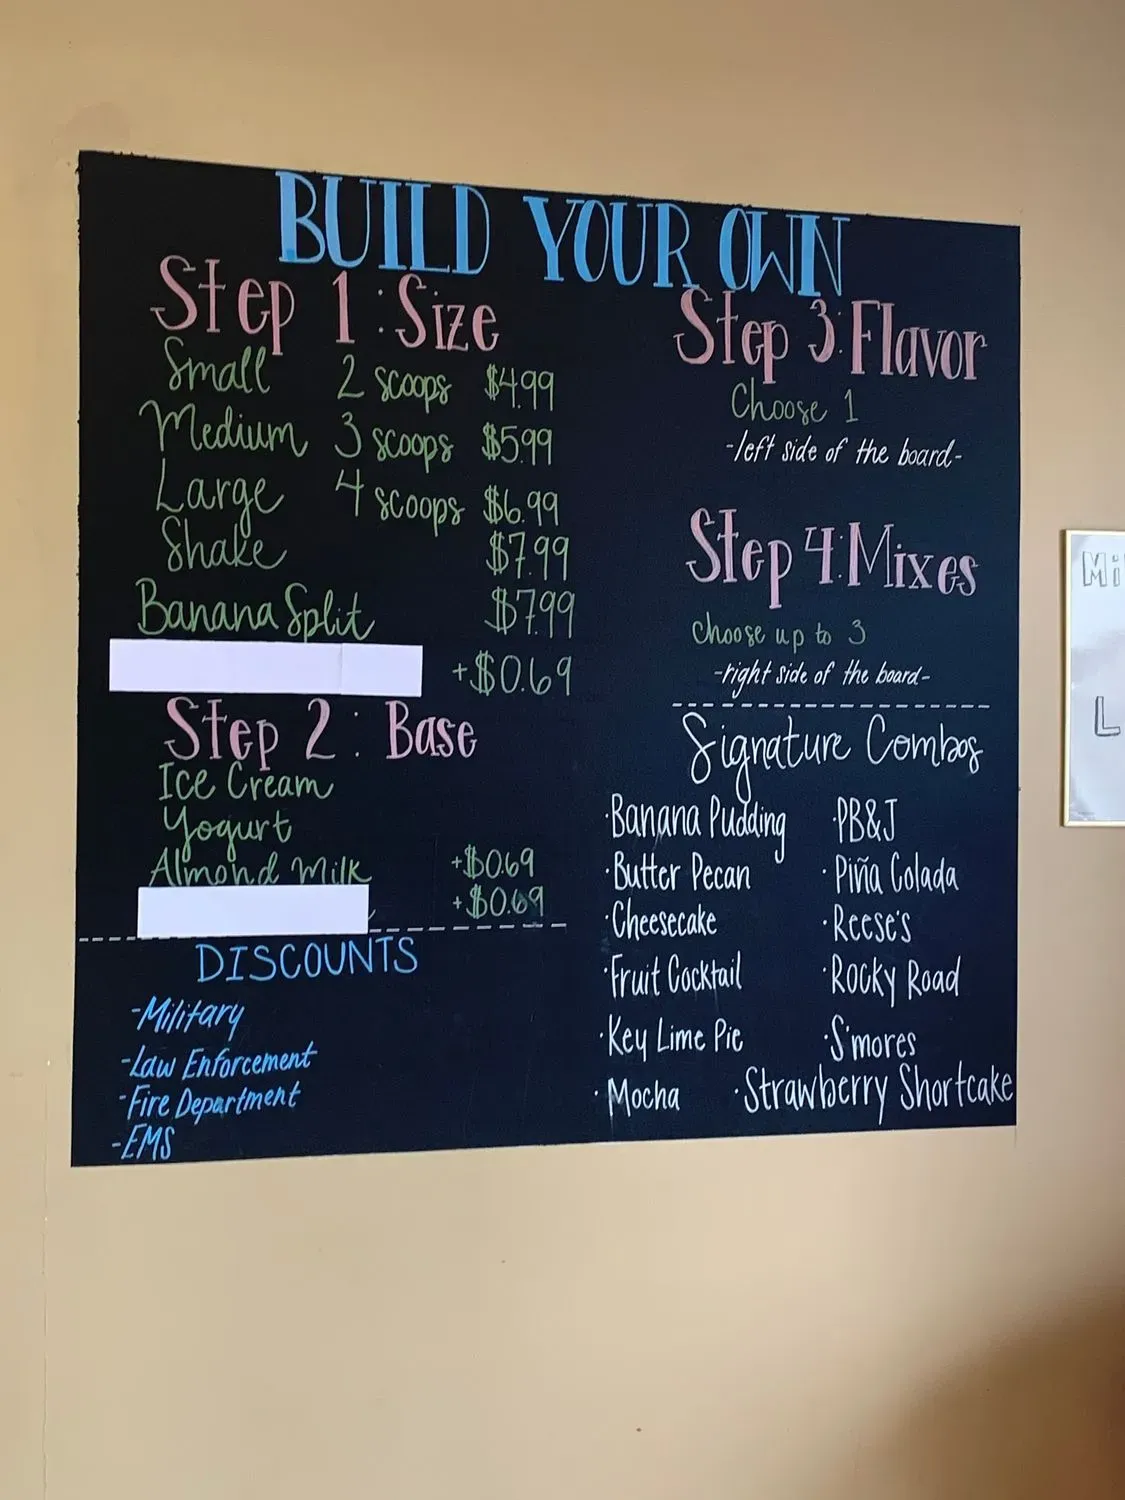 BUILD YOUR OWN
Step 1: Size
Small 2 scoops $4.99
Medium 3 scoops $5.99
Large 4 scoops $6.99
Shake $7.99
Banana Split $7.99
+$0.69
Step 2: Base
Ice Cream
Yogurt
Almond Milk +$0.69
+$0.69
DISCOUNTS
-Military
-Law Enforcement
-Fire Department
-EMS
Step 3: Flavor
Choose 1
-left side of the board-
Step 4: Mixes
Choose up to 3
-right side of the board-
Signature Combos
·Banana Pudding ·PB&J
·Butter Pecan ·Piña Colada
·Cheesecake ·Reese's
·Fruit Cocktail ·Rocky Road
·Key Lime Pie ·S'mores
·Mocha ·Strawberry Shortcake